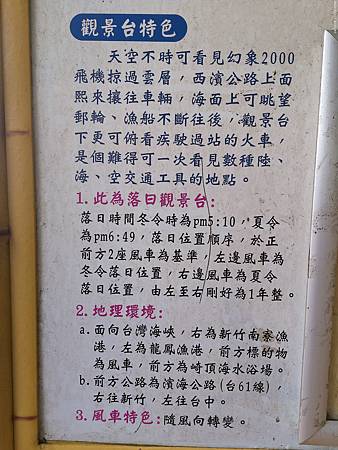 觀景台特色
天空不時可看見幻象2000
飛機掠過雲層，西濱公路上面
熙來攘往車輛，海面上可眺望
郵輪、漁船不斷往後，觀景台
下更可俯看疾駛過站的火車，
是個難得可一次看見數種陸、
海、空交通工具的地點。
1.此為落日觀景台:
落日時間冬令時為pm5:10，夏令
為pm6:49，落日位置順序，於正
前方2座風車為基準，左邊風車為
冬令落日位置，右邊風車為夏令
落日位置，由左至右剛好為1年整。
2.地理環境:
a.面向台灣海峽，右為新竹南寮漁
港，左為龍鳳漁港，前方標的物
為風車，前方為崎頂海水浴場。
b.前方公路為濱海公路(台61線)，
右往新竹，左往台中。
3.風車特色:隨風向轉變。